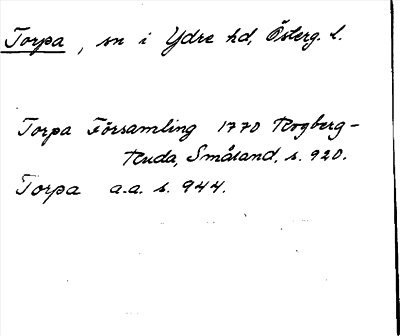 Torpa, sn i Ydre hd, Österg. l.
Torpa Församling 1770 Rogberg-
Ruda, Småland, s. 920.
Torpa a.a. s. 944.